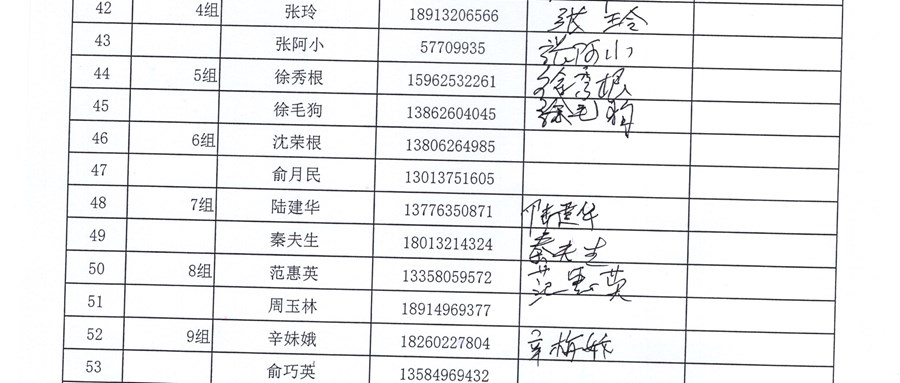 42 4组 张玲 18913206566 张玲
43 张阿小 57709935 张阿小
44 5组 徐秀根 15962532261 徐秀根
45 徐毛狗 13862604045 徐毛狗
46 6组 沈荣根 13806264985
47 俞月民 13013751605
48 7组 陆建华 13776350871 陆建华
49 秦夫生 18013214324 秦夫生
50 8组 范惠英 13358059572 范惠英
51 周玉林 18914969377
52 9组 辛妹娥 18260227804 辛梅娥
53 俞巧英 13584969432